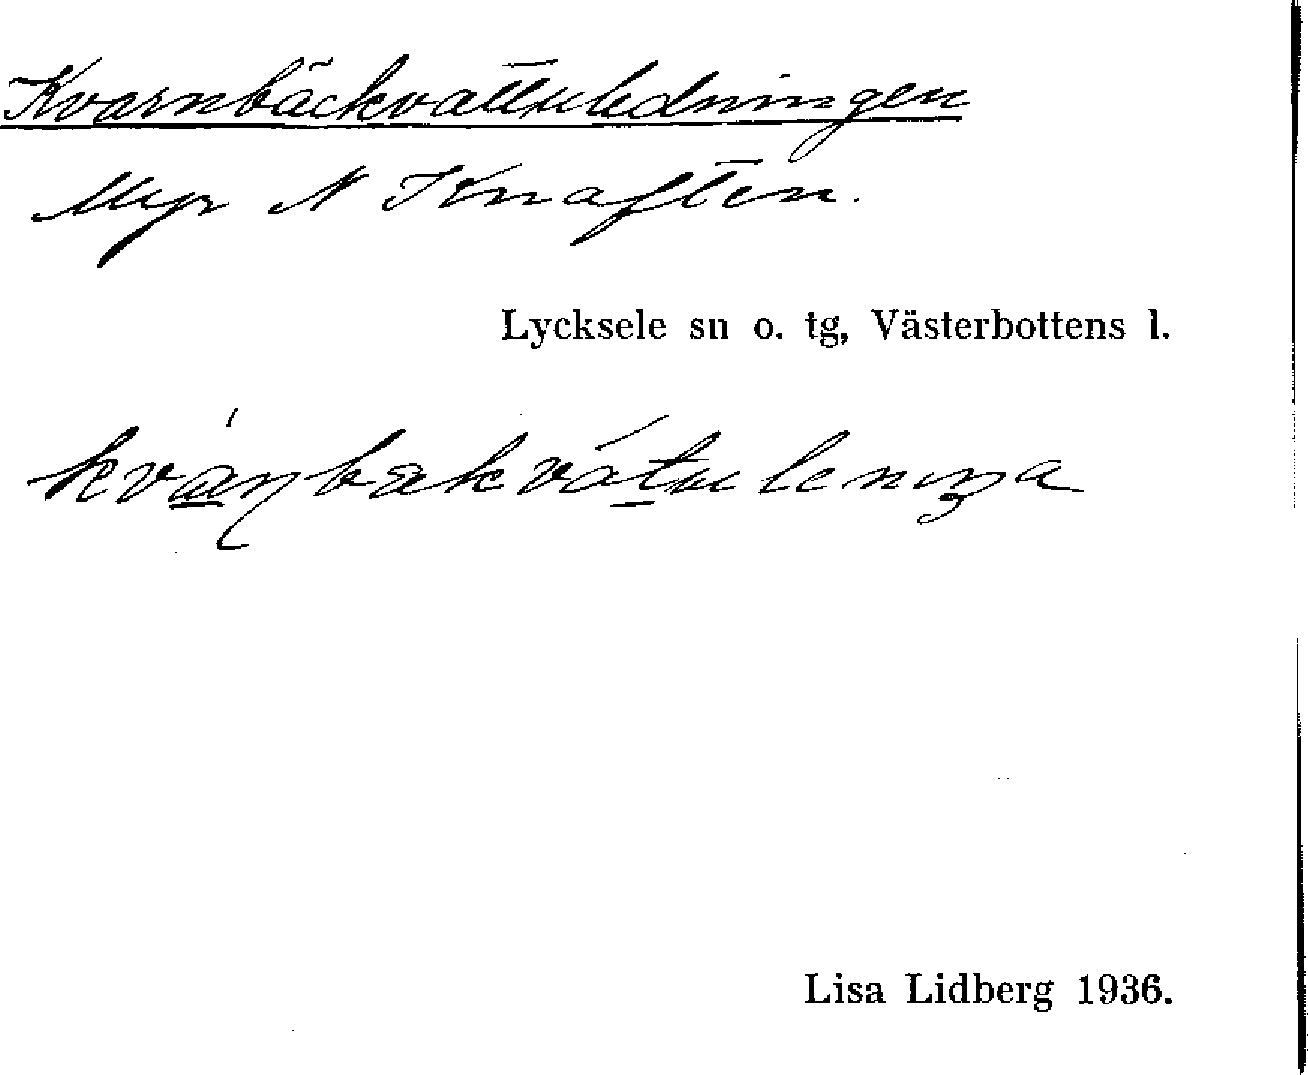 Kvarnbäckvattuledningen
Myr N Knaften.
Lycksele sn o. tg, Västerbottens l.
Lisa Lidberg 1936.